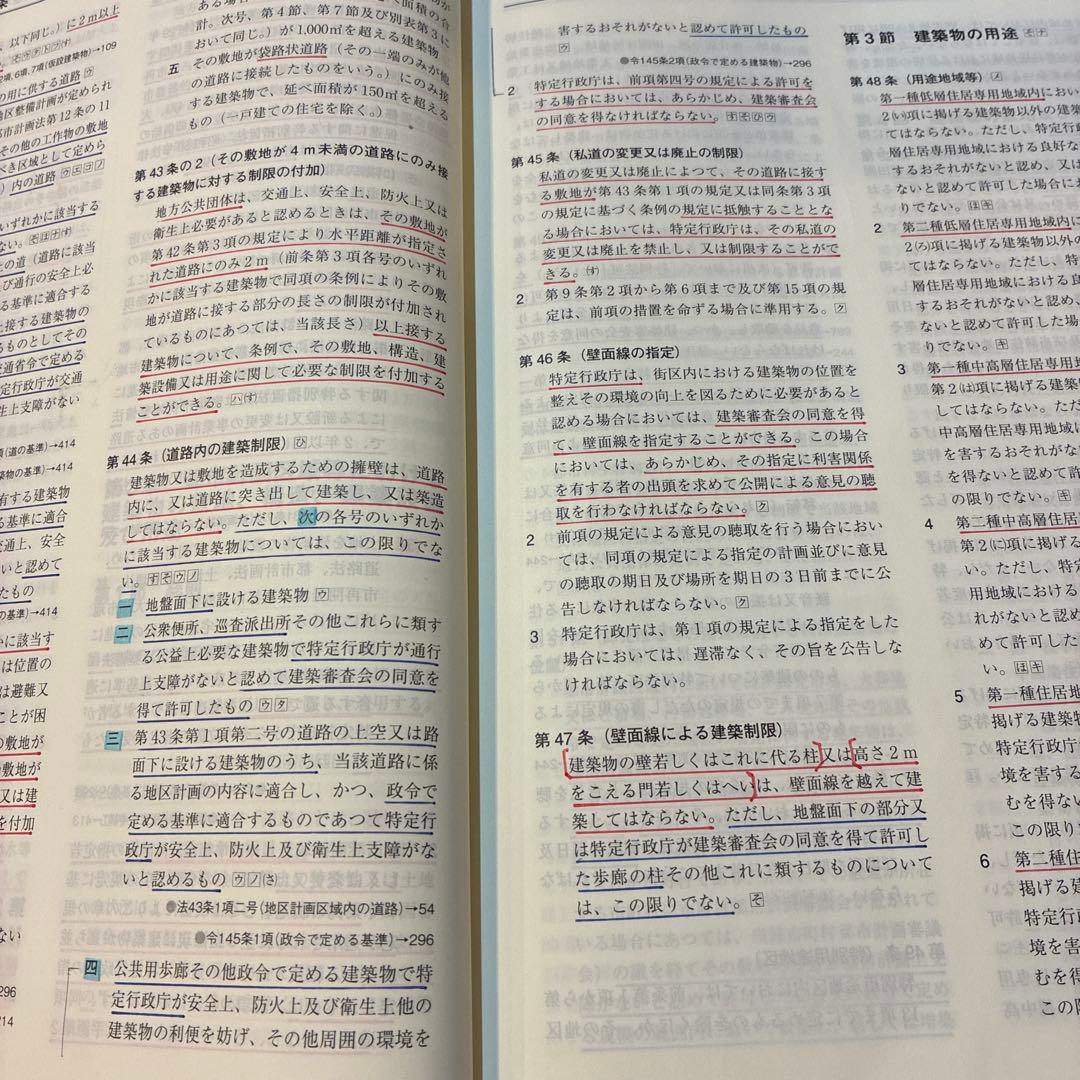 以下同じ。）に2m以上
2項、6項、7項(仮設建築物)→109
の用に供する道路
地区整備計画が定められ
都市計画法第12条の11
その他の工作物の敷地
べき区域として定めら
）内の道路
いずれかに該当する
ない。
との道（道路に該当
及び通行の安全上必
る基準に適合する
上接する建築物の
るものとしてその
交通省令で定める
定行政庁が交通
生上支障がない
項(道の基準)→414
築物の基準)→414
有する建築物
る基準に適合
交通上、安全
いと認めて
たもの
の基準)→414
かに該当す
は位置の
は避難又
ことが困
の敷地が
敷地が
又は建
を付加
ない
296
214
計。次号、第4節、第7節及び別表第3に
おいて同じ。）が1,000㎡を超える建築物
五 その敷地が袋路状道路（その一端のみが他
の道路に接続したものをいう。）にのみ接
する建築物で、延べ面積が150㎡を超える
もの（一戸建ての住宅を除く。）
第43条の2（その敷地が4m未満の道路にのみ接
する建築物に対する制限の付加）
地方公共団体は、交通上、安全上、防火上又は
衛生上必要があると認めるときは、その敷地が
第42条第3項の規定により水平距離が指定さ
れた道路にのみ2m（前条第3項各号のいずれ
かに該当する建築物で同項の条例によりその敷
地が道路に接する部分の長さの制限が付加され
ているものにあつては、当該長さ）以上接する
建築物について、条例で、その敷地、構造、建
築設備又は用途に関して必要な制限を付加する
ことができる。㋩(す)
第44条（道路内の建築制限）
建築物又は敷地を造成するための擁壁は、道路
内に、又は道路に突き出して建築し、又は築造
してはならない。ただし、次の各号のいずれか
に該当する建築物については、この限りでな
い。
一 地盤面下に設ける建築物
二 公衆便所、巡査派出所その他これらに類す
る公益上必要な建築物で特定行政庁が通行
上支障がないと認めて建築審査会の同意を
得て許可したもの
三 第43条第1項第二号の道路の上空又は路
面下に設ける建築物のうち、当該道路に係
る地区計画の内容に適合し、かつ、政令で
定める基準に適合するものであつて特定行
政庁が安全上、防火上及び衛生上支障がな
いと認めるもの
●法43条1項二号(地区計画区域内の道路)→54
●令145条1項(政令で定める基準)→296
四 公共用歩廊その他政令で定める建築物で特
定行政庁が安全上、防火上及び衛生上他の
建築物の利便を妨げ、その他周囲の環境を
害するおそれがないと認めて許可したもの
●令145条2項(政令で定める建築物)→296
2 特定行政庁は、前項第四号の規定による許可を
する場合においては、あらかじめ、建築審査会
の同意を得なければならない。
第45条（私道の変更又は廃止の制限）
私道の変更又は廃止によつて、その道路に接す
る敷地が第43条第1項の規定又は同条第3項
の規定に基づく条例の規定に抵触することとな
る場合においては、特定行政庁は、その私道の
変更又は廃止を禁止し、又は制限することがで
きる。(す)
2 第9条第2項から第6項まで及び第15項の規
定は、前項の措置を命ずる場合に準用する。
第46条（壁面線の指定）
特定行政庁は、街区内における建築物の位置を
整えその環境の向上を図るために必要があると
認める場合においては、建築審査会の同意を得
て、壁面線を指定することができる。この場合
においては、あらかじめ、その指定に利害関係
を有する者の出頭を求めて公開による意見の聴
取を行わなければならない。
2 前項の規定による意見の聴取を行う場合におい
ては、同項の規定による指定の計画並びに意見
の聴取の期日及び場所を期日の3日前までに公
告しなければならない。
3 特定行政庁は、第1項の規定による指定をした
場合においては、遅滞なく、その旨を公告しな
ければならない。
第47条（壁面線による建築制限）
建築物の壁若しくはこれに代る柱又は高さ2m
をこえる門若しくはへいは、壁面線を越えて建
築してはならない。ただし、地盤面下の部分又
は特定行政庁が建築審査会の同意を得て許可し
た歩廊の柱その他これに類するものについて
は、この限りでない。
第3節 建築物の用途
第48条（用途地域等）
第一種低層住居専用地域内におい
2(い)項に掲げる建築物以外の建築
てはならない。ただし、特定行政
層住居専用地域における良好な
するおそれがないと認め、又は
ないと認めて許可した場合にお
りでない。
2 第二種低層住居専用地域内に
2(ろ)項に掲げる建築物以外の
てはならない。ただし、特定
層住居専用地域における良
するおそれがないと認め、
ないと認めて許可した場
りでない。
3 第一種中高層住居専用地
第2(は)項に掲げる建築
してはならない。ただ
中高層住居専用地域に
を害するおそれがない
を得ないと認めて許
の限りでない。
4 第二種中高層住居専
第2(に)項に掲げる
い。ただし、特定
用地域における
するおそれがな
めて許可した
い。
5 第一種住居地
掲げる建築物
特定行政庁
境を害する
むを得ない
この限り
6 第二種住
掲げる建
特定行
境を害
むを得
この限